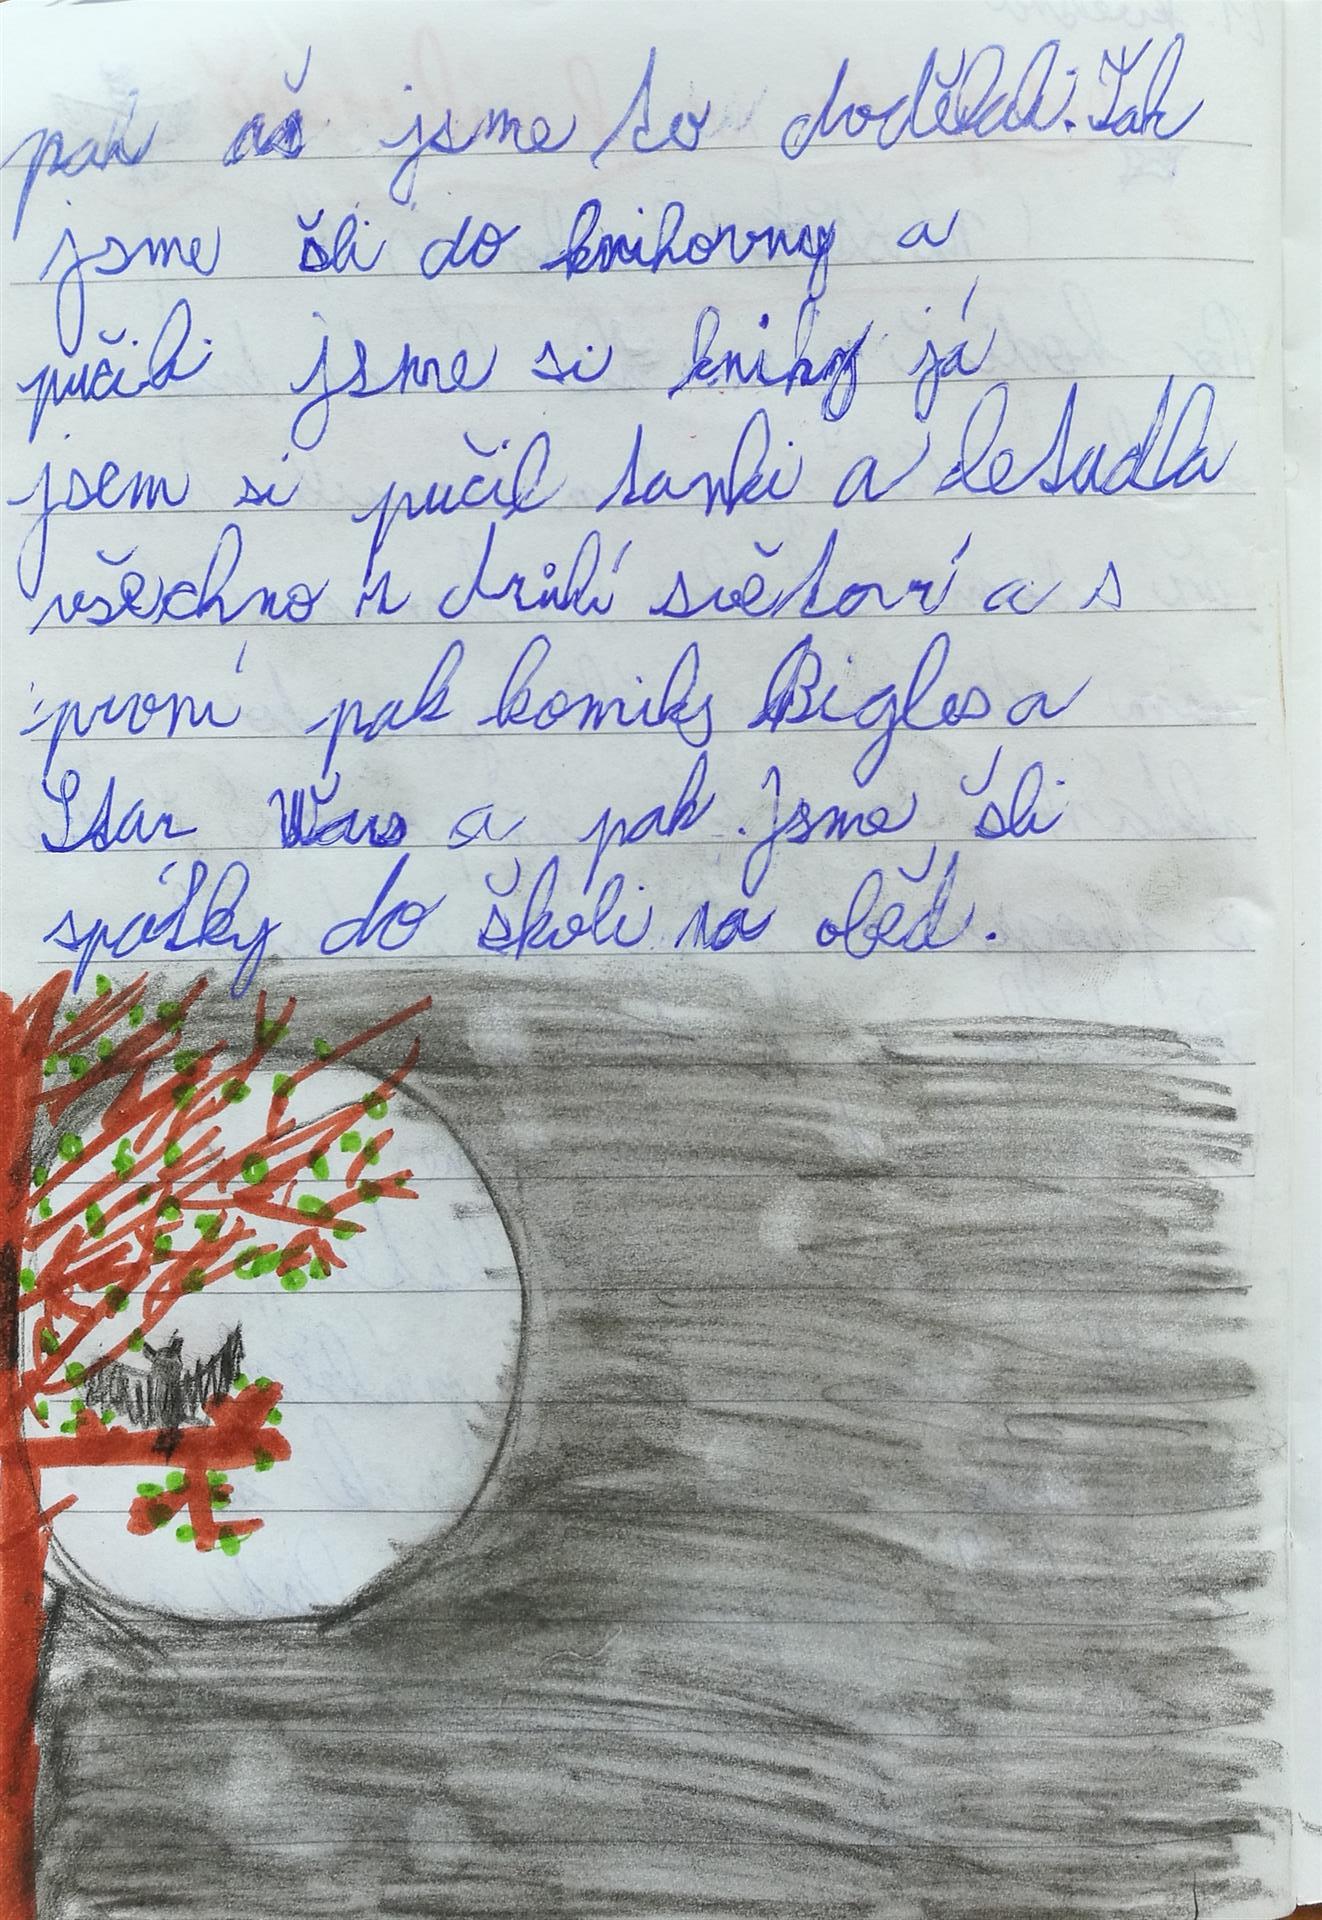 pak aš jsme to dodělali. Tak
jsme šli do knihovny a
pučili jsme si knihy já
jsem si pučil tanki a letadla
všechno z druhí světoví a s
první pak komiks Bigles a
Star Wars a pak jsme šli
spátky do školi na oběd.